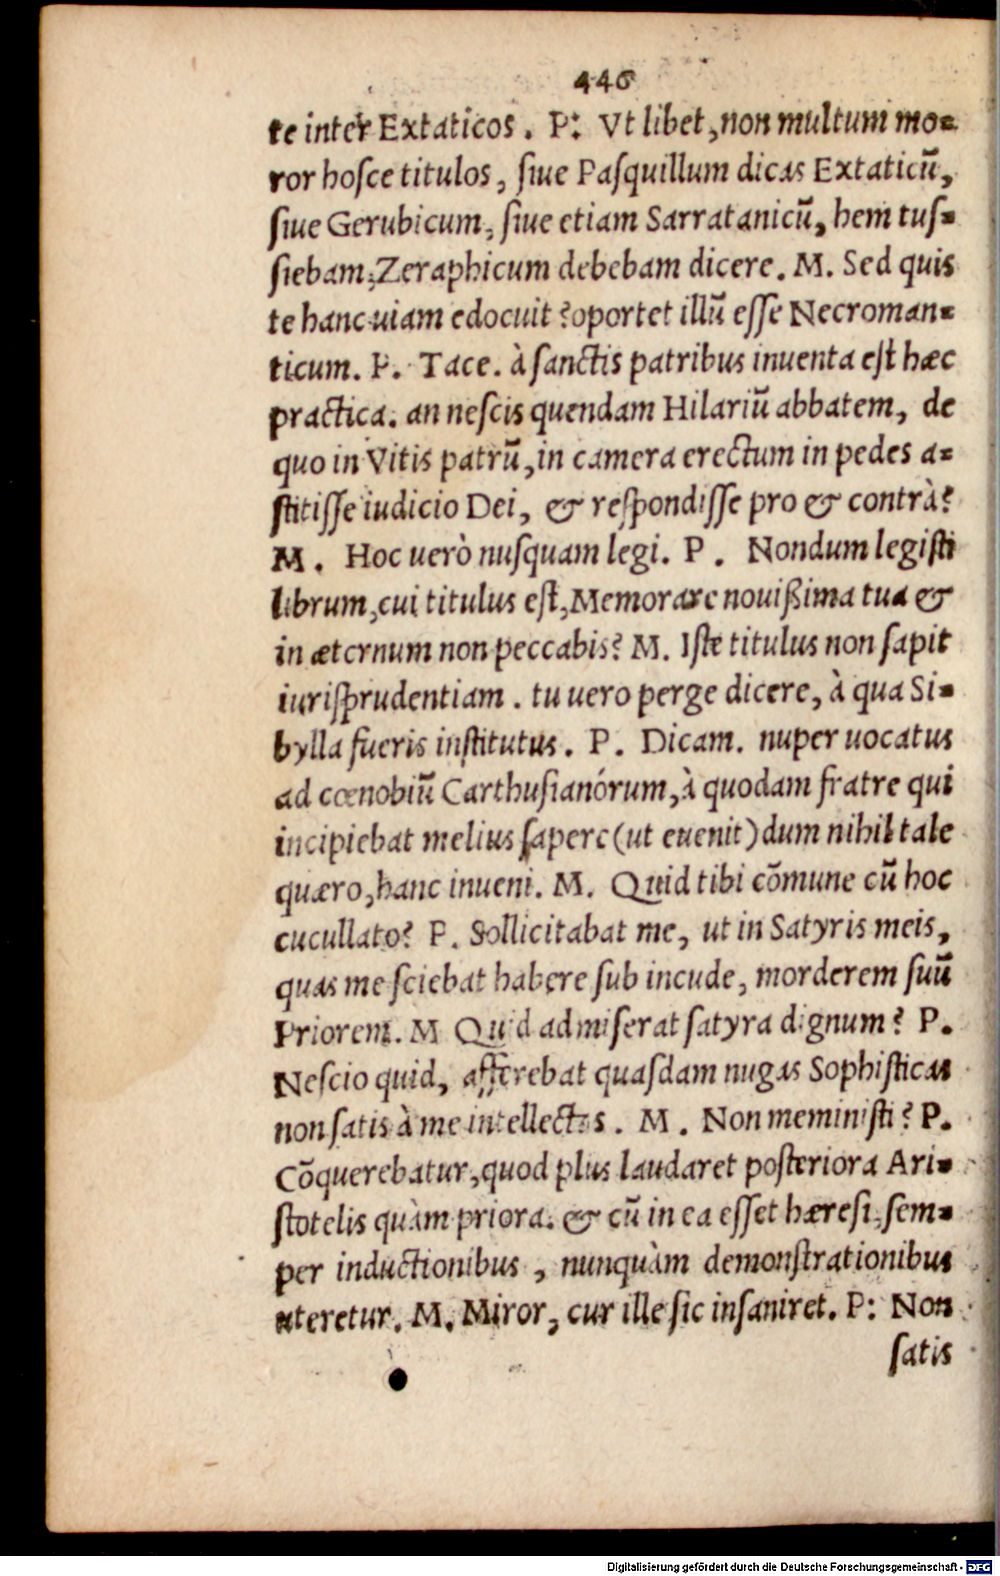 446
te inter Extaticos. P: Vt libet, non multum mo=
ror hosce titulos, siue Pasquillum dicas Extaticũ,
siue Gerubicum, siue etiam Sarratanicũ, hem tus=
siebam, Zeraphicum debebam dicere. M. Sed quis
te hanc uiam edocuit? oportet illũ esse Necroman=
ticum. P. Tace. à sanctis patribus inuenta est hæc
practica. an nescis quendam Hilariũ abbatem, de
quo in Vitis patrũ, in camera erectum in pedes a=
stitisse iudicio Dei, & respondisse pro & contrà?
M. Hoc uerò nusquam legi. P. Nondum legisti
librum, cui titulus est, Memorare nouißima tua &
in æternum non peccabis? M. Iste titulus non sapit
iurisprudentiam. tu uero perge dicere, à qua Si=
bylla fueris institutus. P. Dicam. nuper uocatus
ad cœnobiũ Carthusianórum, à quodam fratre qui
incipiebat melius sapere (ut euenit) dum nihil tale
quæro, hanc inueni. M. Quid tibi cõmune cũ hoc
cucullato? P. Sollicitabat me, ut in Satyris meis,
quas me sciebat habere sub incude, morderem suũ
Priorem. M Quid admiserat satyra dignum? P.
Nescio quid, afferebat quasdam nugas Sophisticas
non satis à me intellectas. M. Non meministi? P.
Cõquerebatur, quod plus laudaret posteriora Ari=
stotelis quàm priora. & cũ in ea esset hæresi, sem=
per inductionibus, nunquàm demonstrationibus
uteretur. M. Miror, cur ille sic insaniret. P: Non
satis
Digitalisierung gefördert durch die Deutsche Forschungsgemeinschaft - DFG